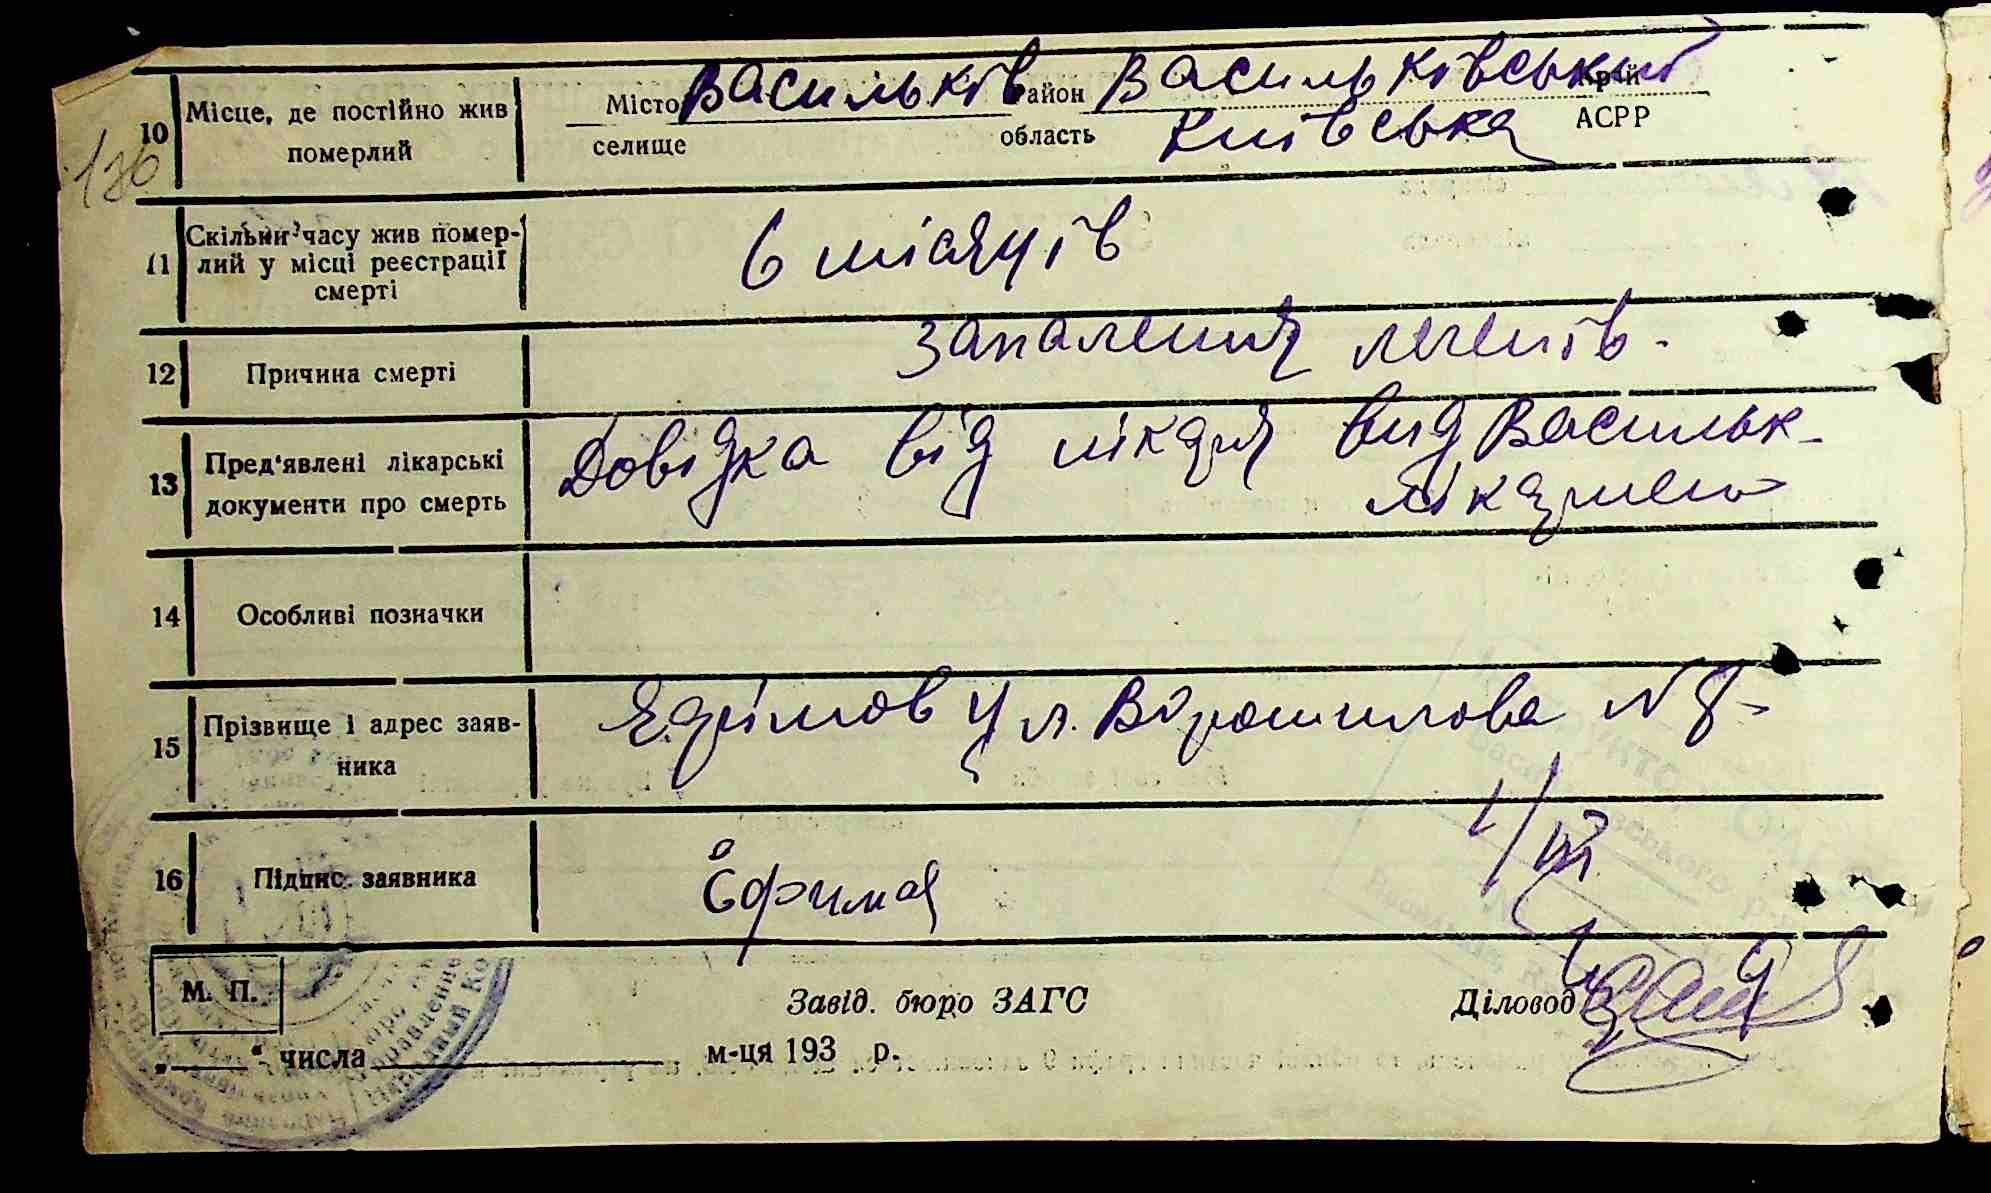 10 Місце, де постійно жив померлий
Місто Васильків район Васильківський Край
селище область Київська АСРР
136
11 Скільки часу жив помер-
лий у місці реєстрації
смерті
6 місяців
12 Причина смерті
запалення легенів.
13 Пред'явлені лікарські
документи про смерть
Довідка від лікаря вид Васильк-
лікарнею
14 Особливі позначки
15 Прізвище і адрес заяв-
ника
Ефімов ул. Ворошилова N 8-
16 Підпис заявника
1/III
М. П.
Завід. бюро ЗАГС
Діловод
„ “ числа м-ця 193 р.